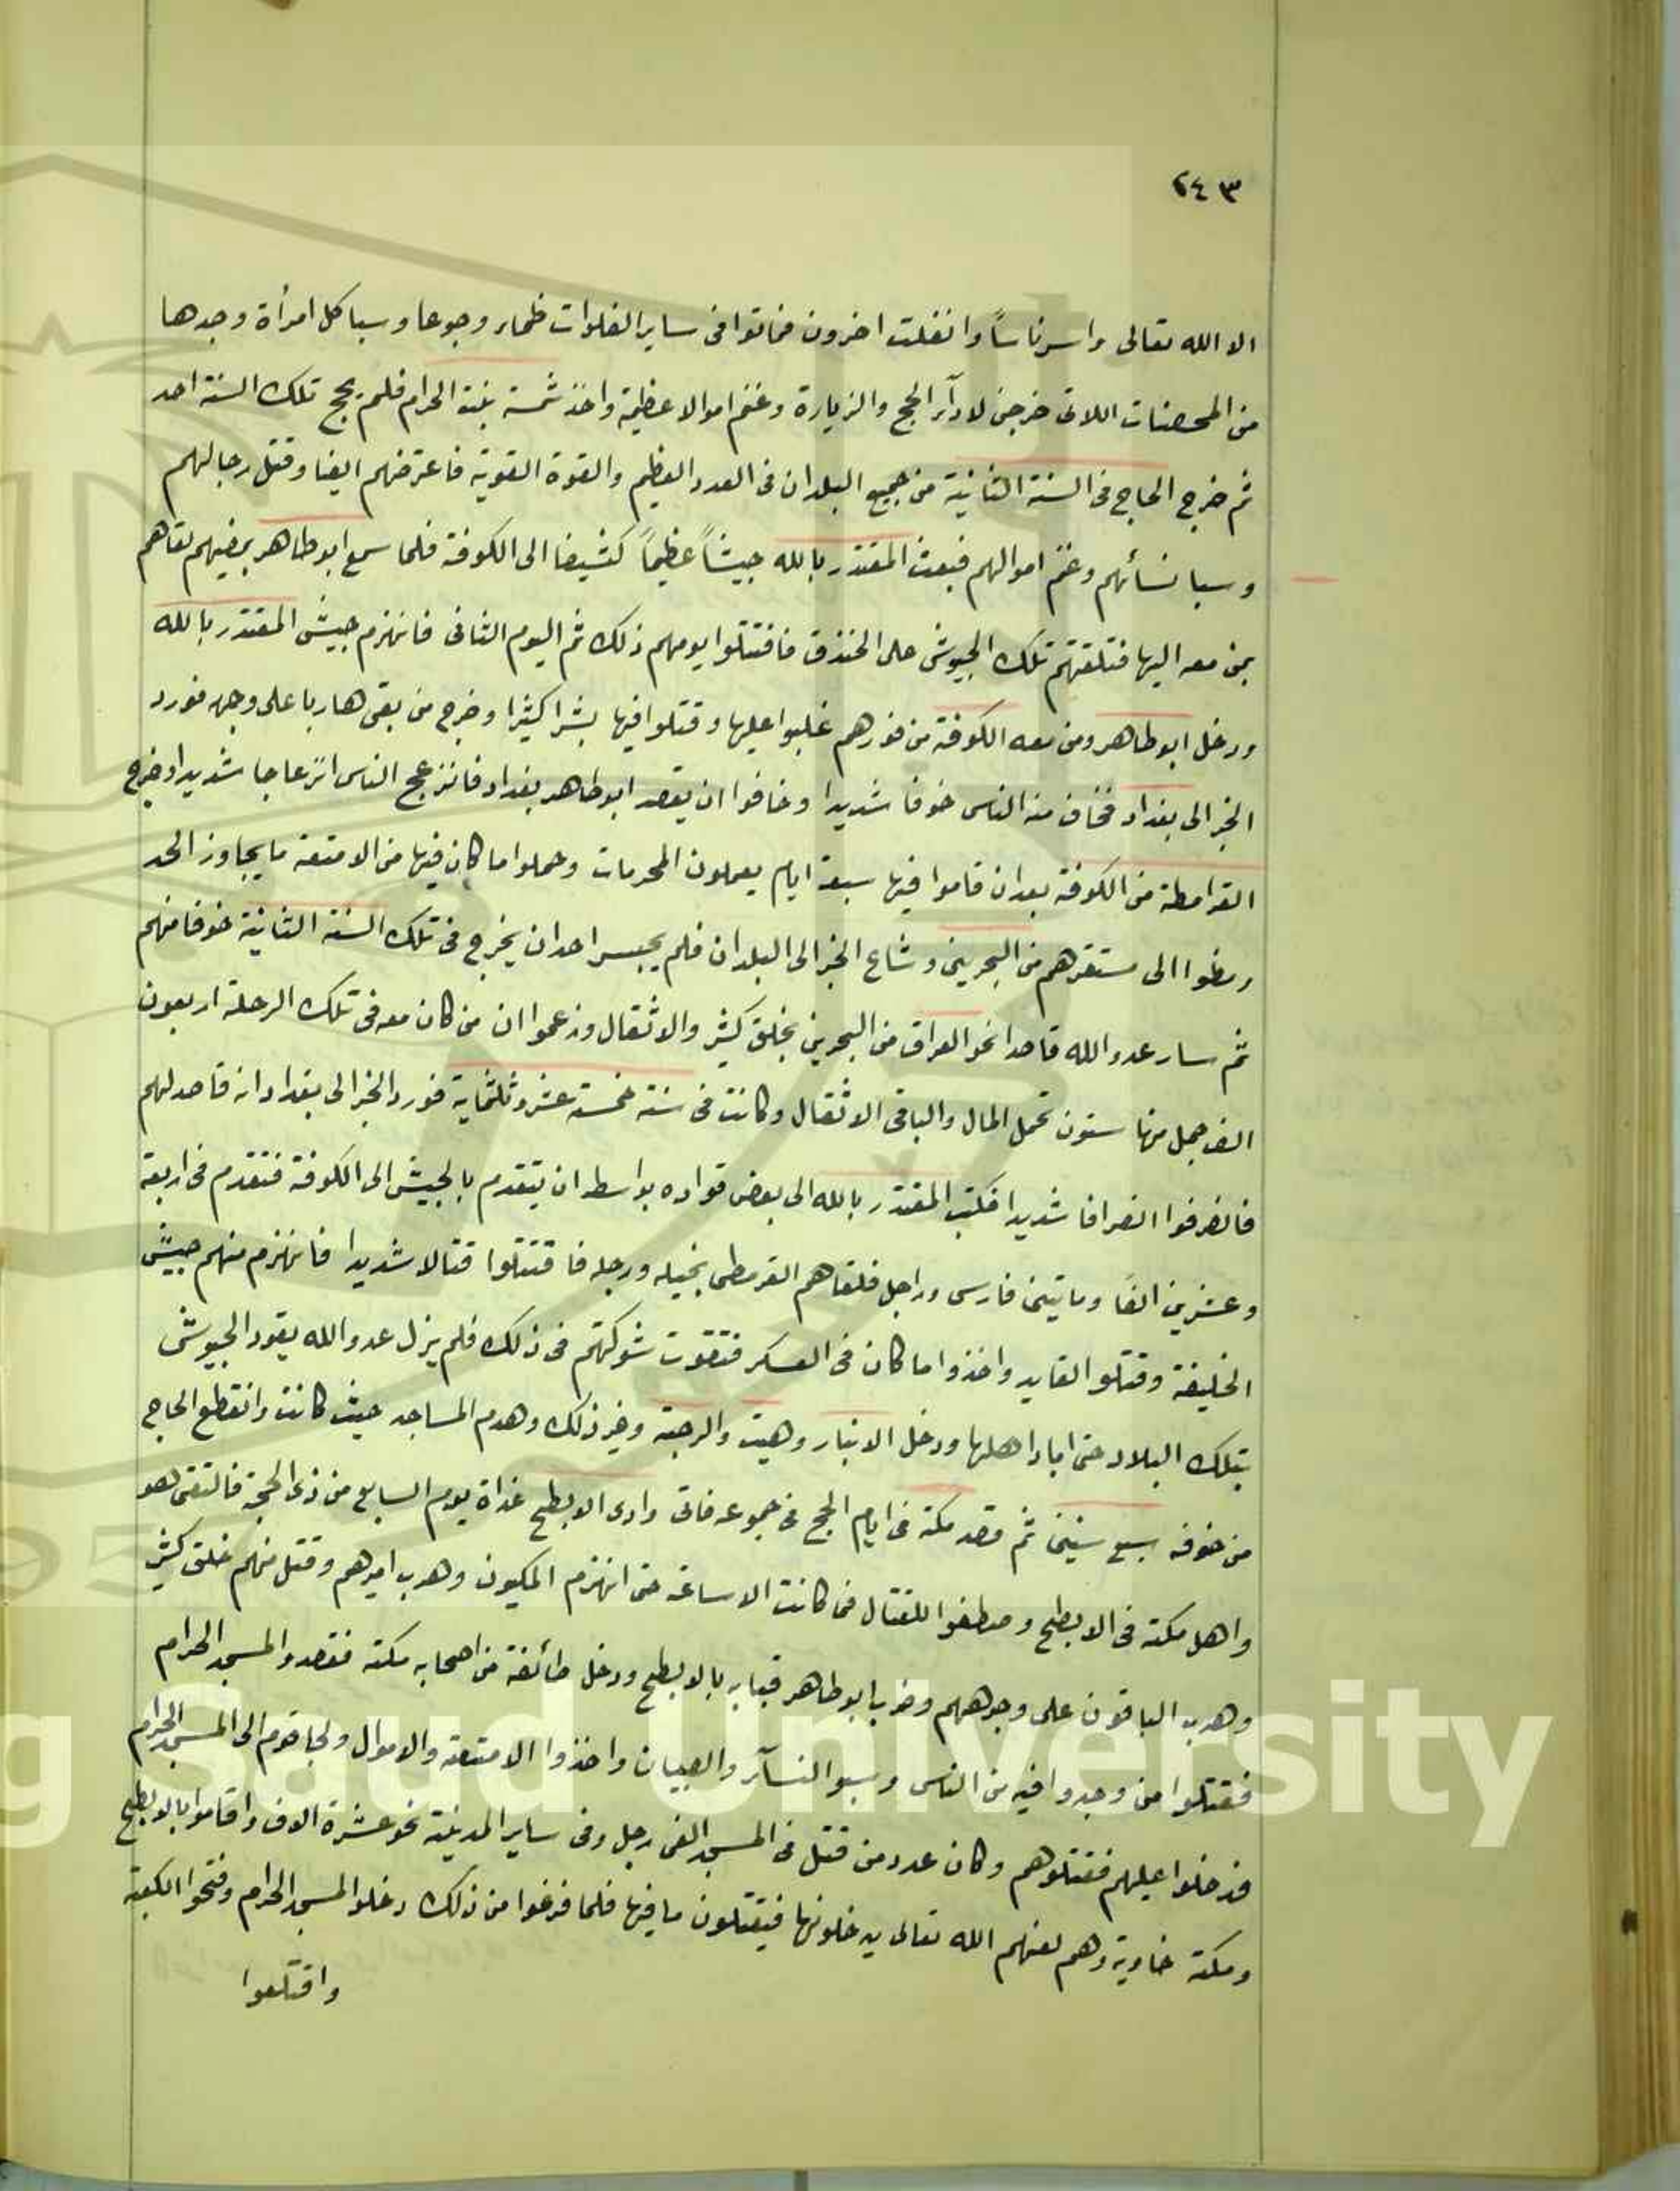 ٢٤٣
الا الله تعالى واسر ناساً وانفلت اخرون فماتوا فى ساير الفلوات ظماء وجوعا وسبا كل امرأة وجدها
من المحصنات اللاتى خرجن لادآء الحج والزيارة وغنم اموالا عظيمة واخذ شمسة بيت الحرام فلم يحج تلك السنة احد
ثم خرج الحاج فى السنة الثانية من جميع البلدان فى العدد العظيم والقوة القوية فاعترضهم ايضا وقتل رجالهم
وسبا نسائهم وغنم اموالهم فبعث المقتدر بالله جيشاً عظيماً كثيفا الى الكوفة فلما سمع ابو طاهر بمضيهم تقاهم
بمن معه اليها فتلقتهم تلك الجيوش على الخندق فاقتتلوا يومهم ذلك ثم اليوم الثانى فانهزم جيش المقتدر بالله
ودخل ابو طاهر ومن معه الكوفة من فورهم غلبوا عليها وقتلوا فيها بشرا كثيرا وخرج من بقى هاربا على وجهه فورد
الخبر الى بغداد فخاف منه الناس خوفا شديدا وخافوا ان يقصد ابو طاهر بغداد فانزعج الناس انزعاجا شديدا وخرج
القرامطة من الكوفة بعد ان قاموا فيها سبعة ايام يعملون المحرمات وحملوا ما كان فيها من الامتعة ما يجاوز الحد
ومظوا الى مستقرهم من البحرين وشاع الخبر الى البلدان فلم يجسر احد ان يخرج فى تلك السنة الثانية خوفا منهم
ثم سار عدو الله قاصدا نحو العراق من البحرين بخلق كثير والاثقال وزعموا ان من كان معه فى تلك الرحلة اربعون
الف جمل منها ستون تحمل المال والباقى الاثقال وكانت فى سنة خمسة عشر وثلثماية فورد الخبر الى بغداد انه قاصد لهم
فانصرفوا انصرافا شديدا فكتب المقتدر بالله الى بعض قواده بواسط ان يتقدم بالجيش الى الكوفة فتقدم فى اربعة
وعشرين الفاً وماتين فارس وراجل فلقاهم القرمطى بخيله ورجله فاقتتلوا قتالا شديدا فانهزم منهم جيش
الخليفة وقتلو القايد واخذوا ما كان فى العسكر فتقوت شوكتهم فى ذلك فلم يزل عدو الله يقود الجيوش
بتلك البلاد حتى اباد اهلها ودخل الانبار وهيت والرحبة وغير ذلك وهدم المساجد حيث كانت وانقطع الحاج
من خوفه سبع سنين ثم قصد مكة فى ايام الحج فى جموعه فاتى وادى الابطح غداة يوم السابع من ذى الحجة فالتقى هو
واهل مكة فى الابطح وصطفوا للقتال فما كانت الا ساعة حتى انهزم المكيون وهرب اميرهم وقتل منهم خلق كثير
وهرب الباقون على وجوههم وضرب ابو طاهر قبابه بالابطح ودخل طائفة من اصحابه مكة فقصدوا المسجد الحرام
فقتلوا من وجدوا فيه من الناس وسبو النسآء والصبيان واخذوا الامتعة والاموال ولجا قوم الى المسجد الحرام
فدخلوا عليهم فقتلوهم وكان عدد من قتل فى المسجد الفى رجل وفى ساير المدينة نحو عشرة الاف واقاموا بالابطح
ومكة خاوية وهم لعنهم الله تعالى يدخلونها فيقتلون ما فيها فلما فرغوا من ذلك دخلوا المسجد الحرام وفتحوا الكعبة
واقتلعوا
g Saud University